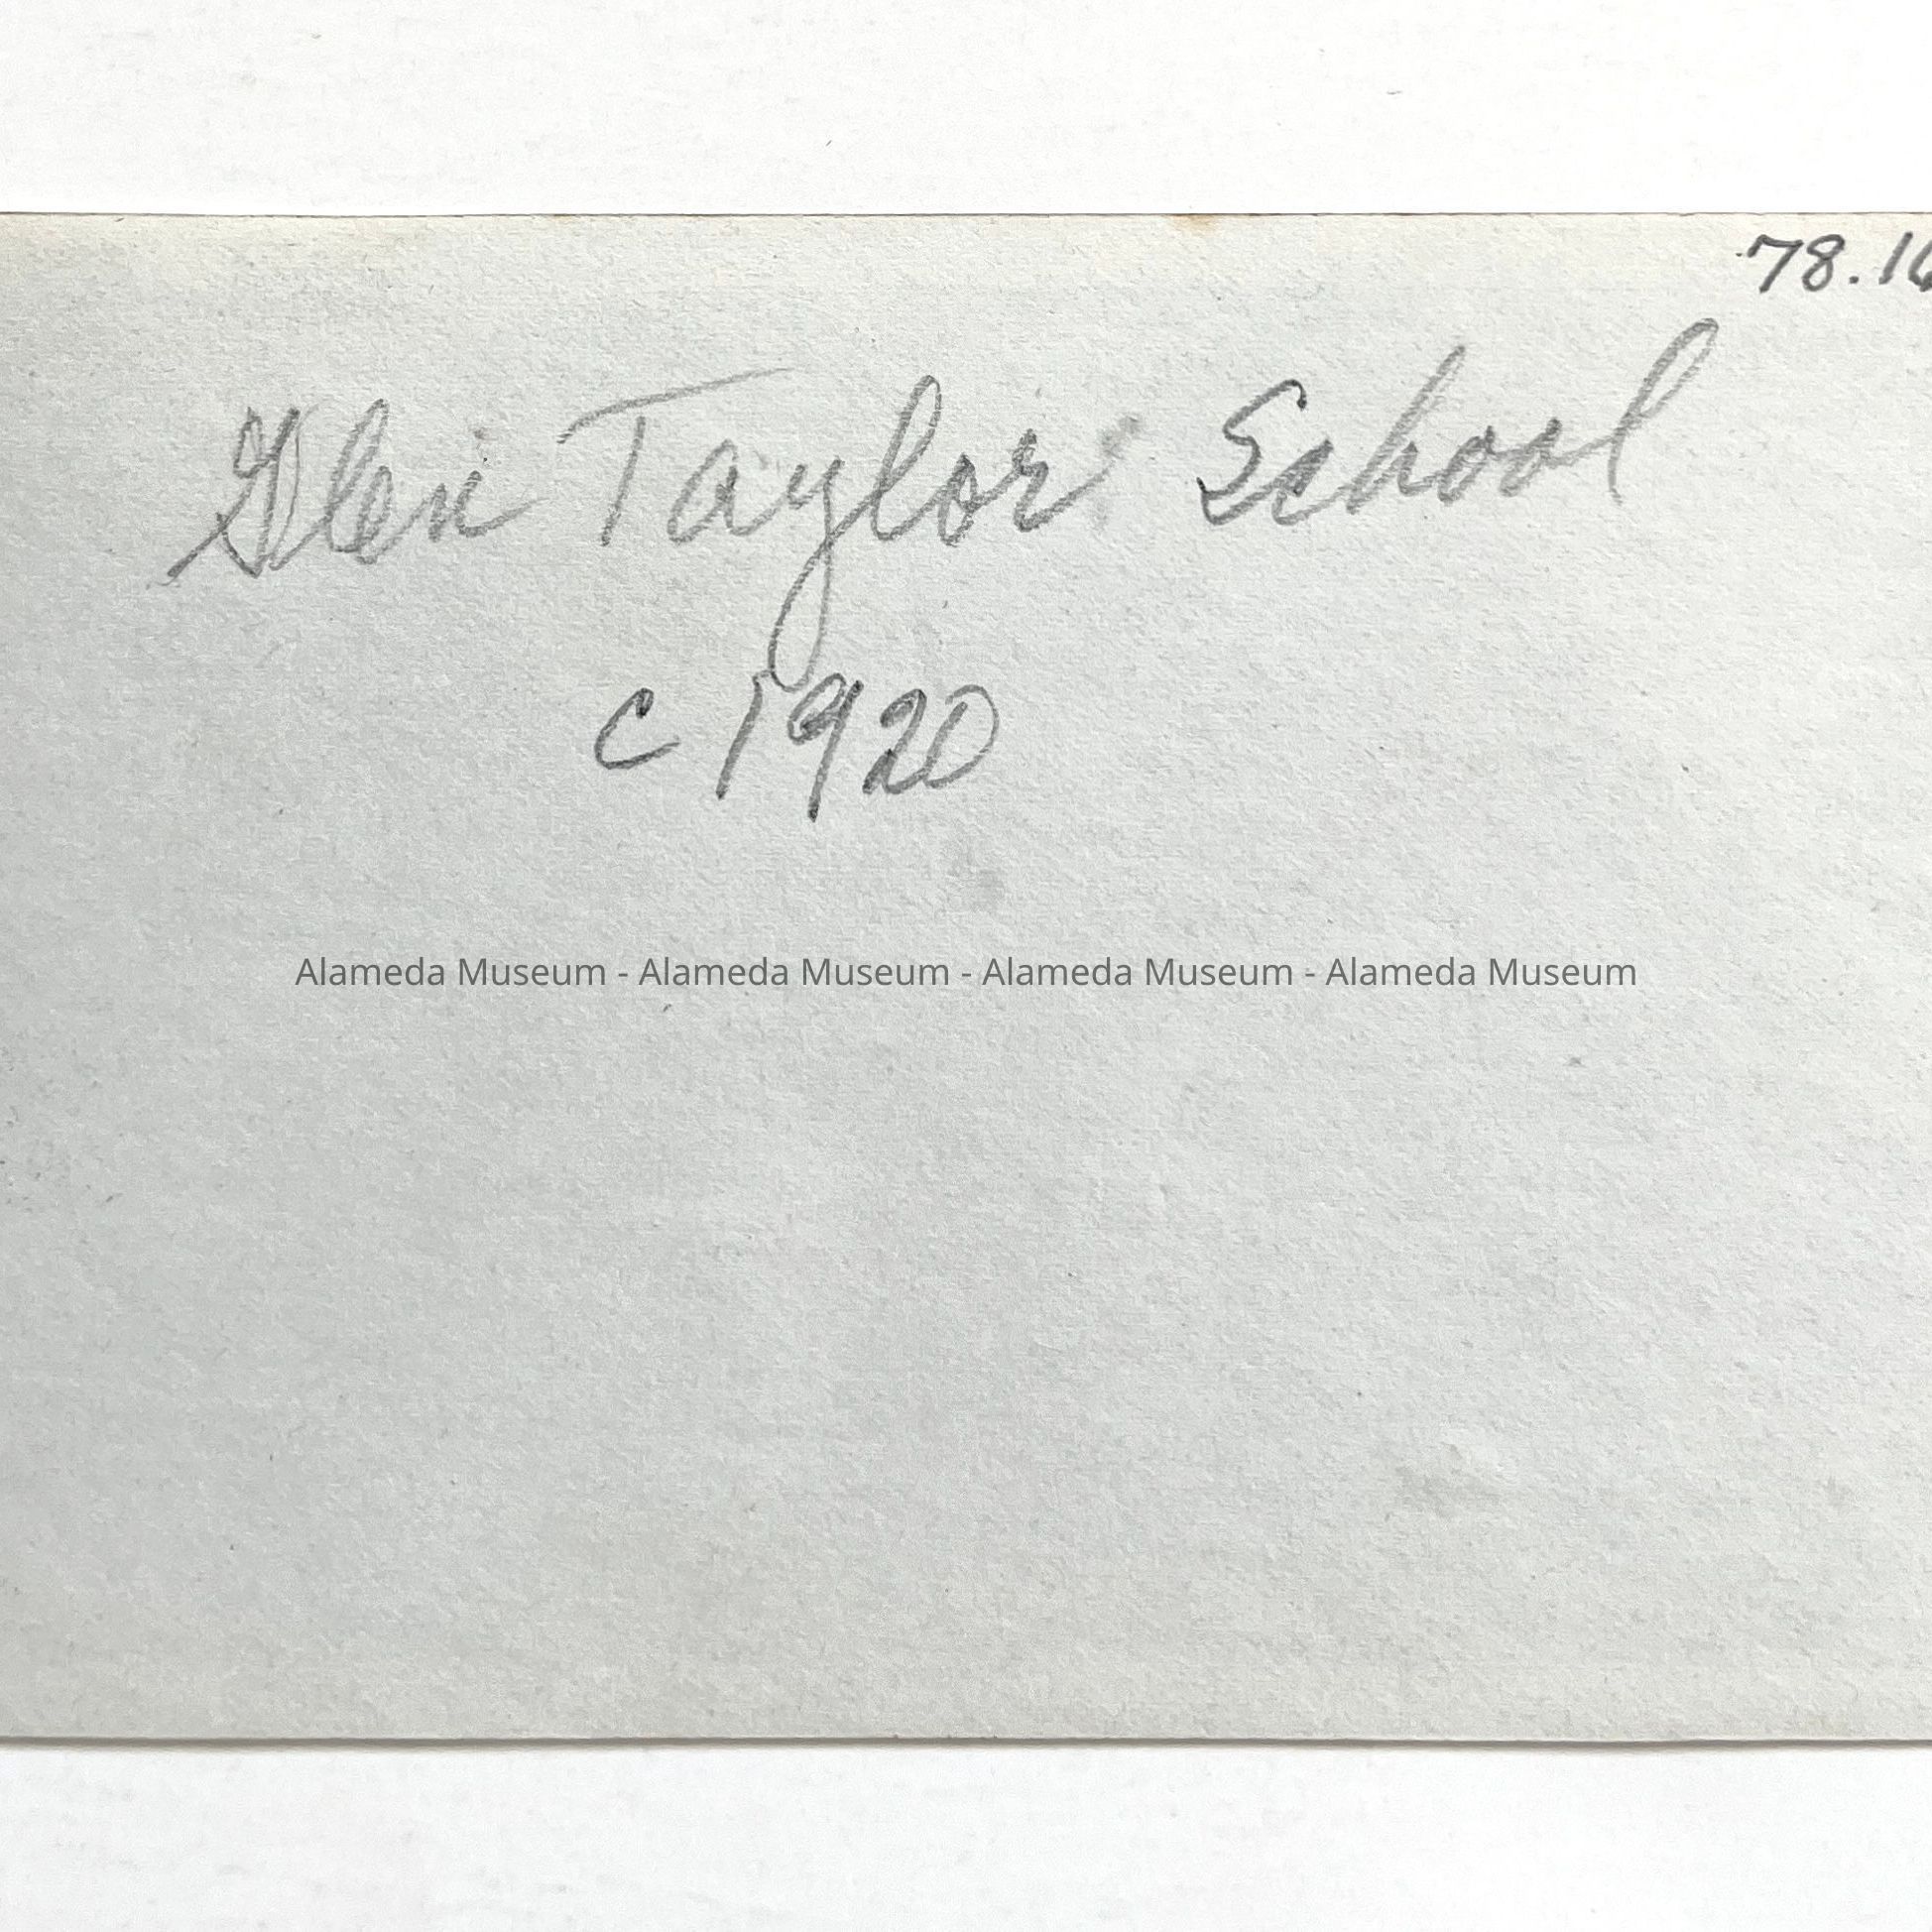 78.16
Glen Taylor School
c 1920
Alameda Museum - Alameda Museum - Alameda Museum - Alameda Museum